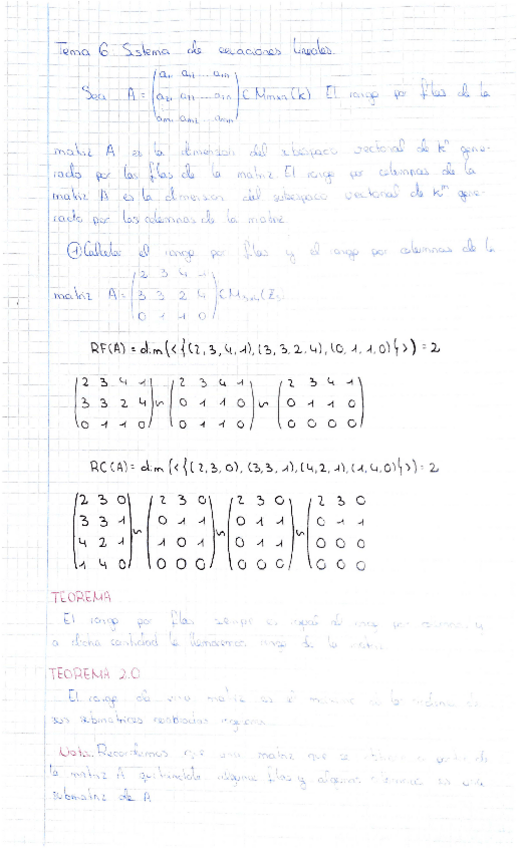 Tema 6 Sistema de ecuaciones lineales
Sea A = (a₁₁ a₁₂ ... a₁ₙ
a₂₁ a₂₂ ... a₂ₙ
aₘ₁ aₘ₂ ... aₘₙ) ∈ Mmxn(K) El rango por filas de la
matriz A es la dimension del subespacio vectorial de Kⁿ gene-
rado por las filas de la matriz. El rango por columnas de la
matriz A es la dimension del subespacio vectorial de Kᵐ gene-
rado por las columnas de la matriz.
① Calcular el rango por filas y el rango por columnas de la
matriz A = (2 3 4 1
3 3 2 4
0 1 1 0)
RF(A) = dim(<{(2,3,4,1),(3,3,2,4),(0,1,1,0)}>) = 2
(2 3 4 1 ~ (2 3 4 1 ~ (2 3 4 1
3 3 2 4 0 1 1 0 0 1 1 0
0 1 1 0) 0 1 1 0) 0 0 0 0)
RC(A) = dim(<{(2,3,0),(3,3,1),(4,2,1),(1,4,0)}>) = 2
(2 3 0 ~ (2 3 0 ~ (2 3 0 ~ (2 3 0
3 3 1 0 1 1 0 1 1 0 1 1
4 2 1 1 0 1 0 1 1 0 0 0
1 4 0) 0 0 0) 0 0 0) 0 0 0
TEOREMA
El rango por filas siempre es igual al rango por columnas y
a dicha cantidad la llamaremos rango de la matriz.
TEOREMA 2.0
El rango de una matriz es el de
sus submatrices cuadradas regulares.
Nota: Recordemos que una matriz que se obtiene a partir de
la matriz A quitandole algunas filas y algunas columnas es una
submatriz de A